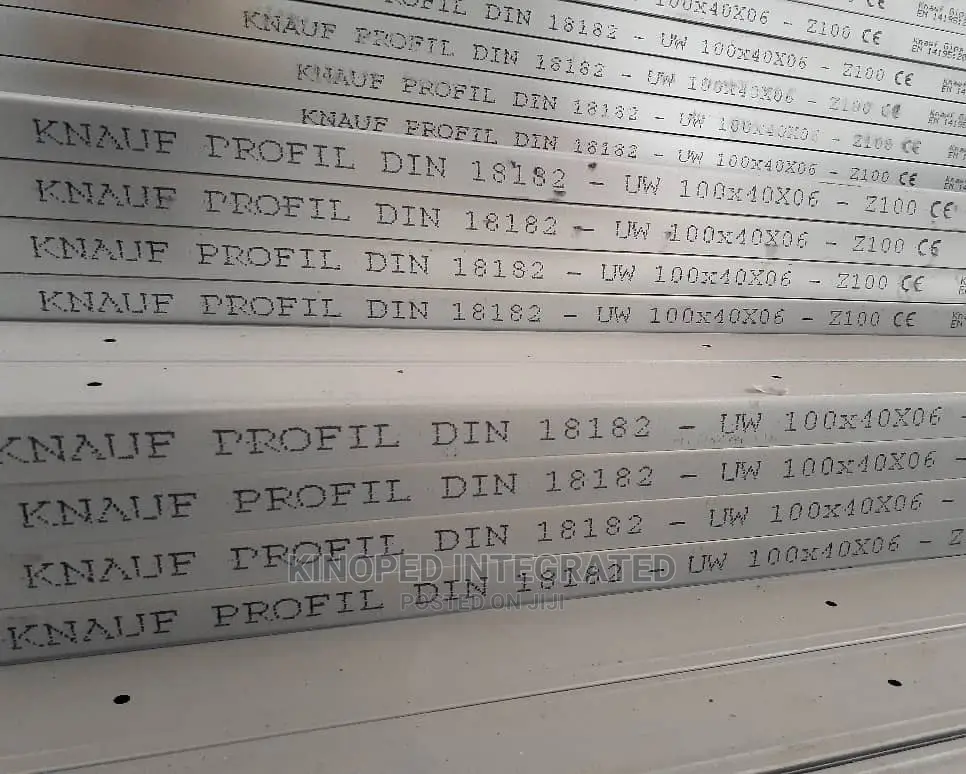 PROFIL DIN 18182 - UW 100x40X06 - Z100 CE
KNAUF PROFIL DIN 18182 - UW 100x40X06 - Z100 CE
KNAUF PROFIL DIN 18182 - UW 100x40X06 - Z100 CE
KNAUF PROFIL DIN 18182 - UW 100x40X06 - Z100 CE
KNAUF PROFIL DIN 18182 - UW 100x40X06 - Z100 CE
KNAUF PROFIL DIN 18182 - UW 100x40X06 - Z100 CE
KNAUF PROFIL DIN 18182 - UW 100x40X06 - Z100 CE
KNAUF PROFIL DIN 18182 - UW 100x40X06 - Z100 CE
KNAUF PROFIL DIN 18182 - UW 100x40X06 -
KNAUF PROFIL DIN 18182 - UW 100x40X06 -
KNAUF PROFIL DIN 18182 - UW 100x40X06 -
KNAUF PROFIL DIN 18182 - UW 100x40X06 - Z
KINOPED INTEGRATED
POSTED ON JIJI